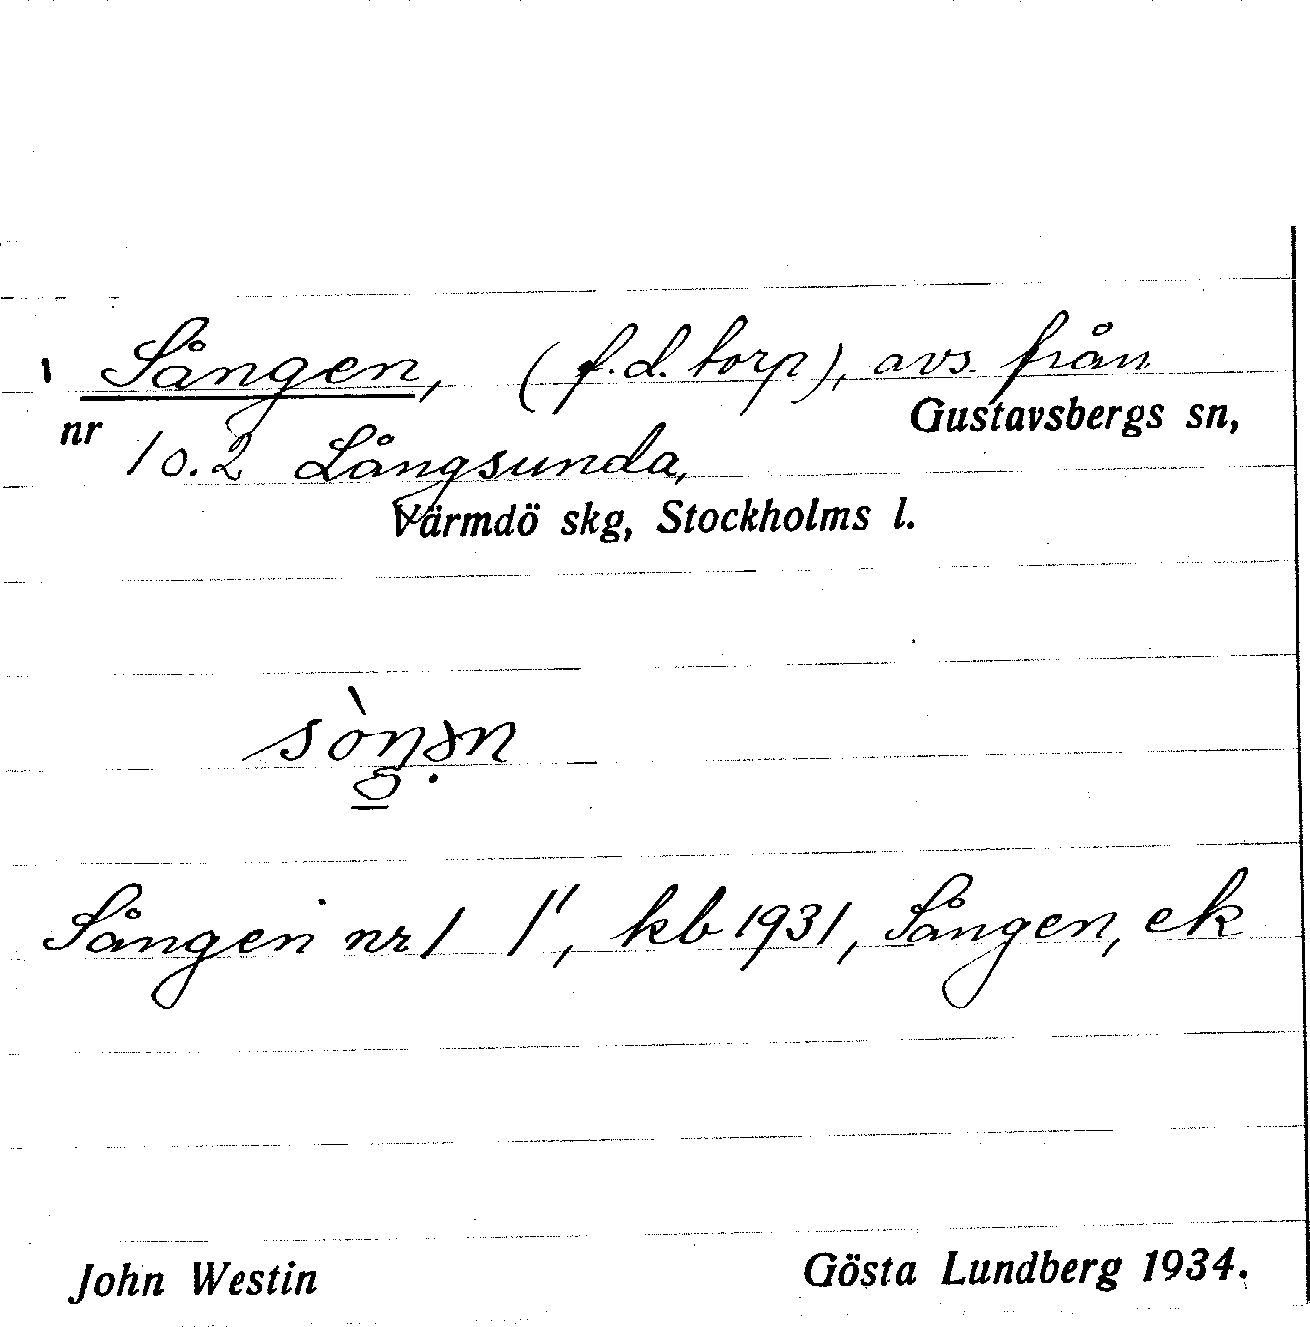 Sången, (f.d. torp), avs. från
nr 1 o. 2 Långsunda, Gustavsbergs sn,
Värmdö skg, Stockholms l.
sòŋə̣n
Sången nr 1 /', kb 1931, Sången, ek
John Westin Gösta Lundberg 1934.